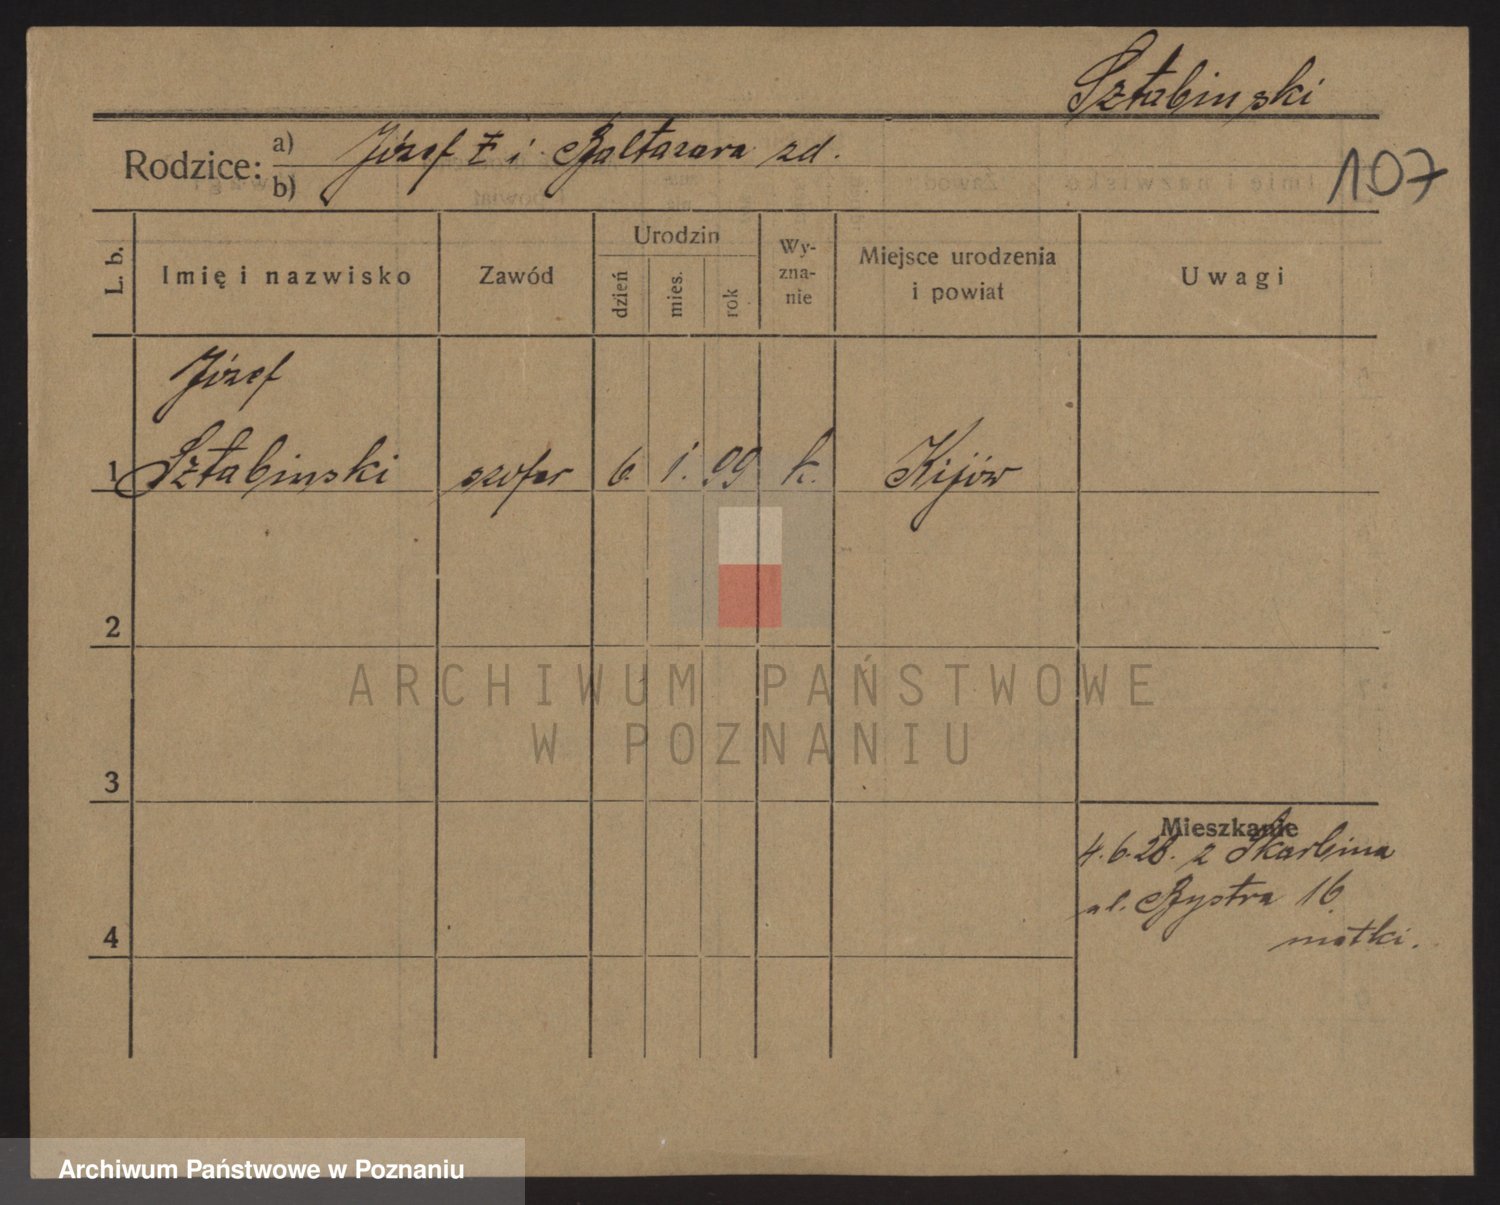 Sztabinski
Rodzice: a) b) Józef i Baltazara zd.
107
L. b. Imię i nazwisko Zawód Urodzin dzień mies. rok Wy-zna-nie Miejsce urodzenia i powiat Uwagi
Józef
1 Sztabinski szofer 6. 1. 99 k. Kijów
2
ARCHIWUM PAŃSTWOWE
W POZNANIU
3
Mieszkanie
4.6.28. z Skarbina
ul. Bystra 16
matki.
4
Archiwum Państwowe w Poznaniu